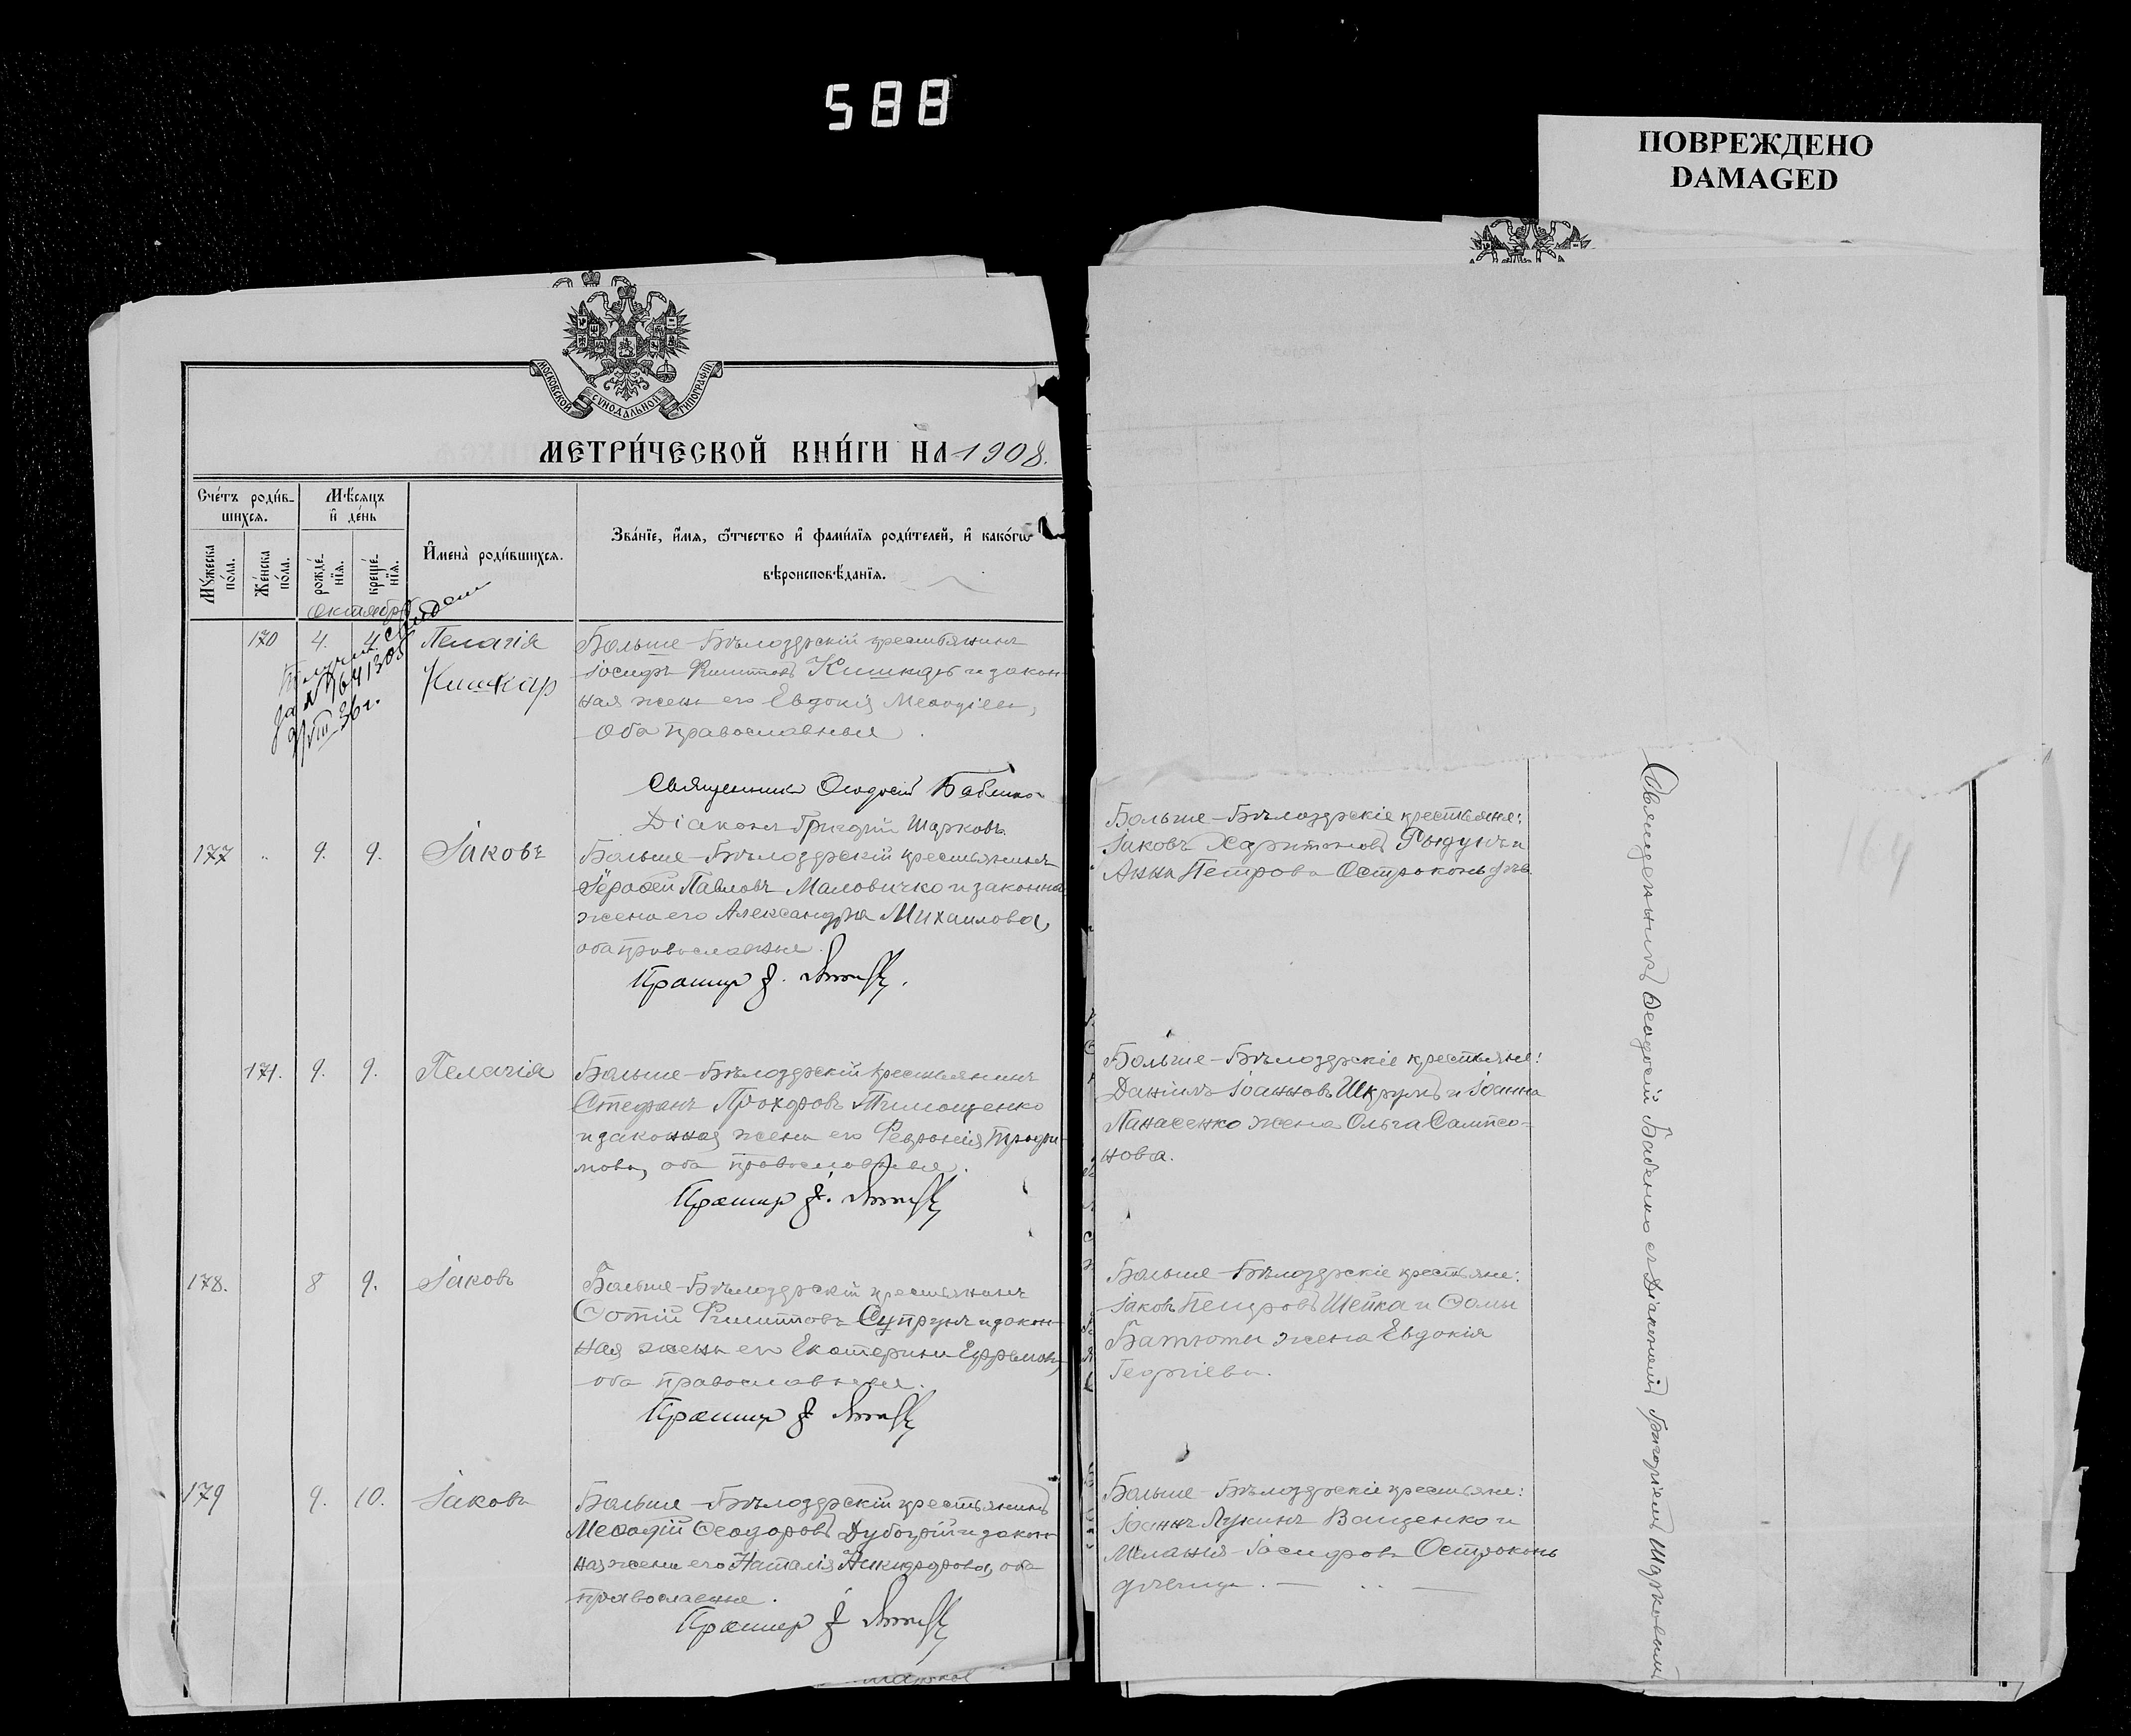 588
ПОВРЕЖДЕНО
DAMAGED
МОСКОВСКОЙ СѴНОДАЛЬНОЙ ТИПОГРАФІИ
МЕТРИ́ЧЕСКОЙ КНИ́ГИ НА 1908.
Сче́тъ роди́в-
шихся.
Мѣ́сяцъ
и҆ де́нь
Мꙋ́жеска
по́ла.
Же́нска
по́ла.
рожде́-
нїя.
креще́-
нїя.
И҆мена̀ роди́вшихся.
Зва́нїе, и҆́мя, ѻ҆́тчество и҆ фами́лїя роди́телей, и҆ како́гѡ
вѣроисповѣ́данїя.
Октябрь
170 4. 4. Пелагія
Кишкар
за № 641305
VIII 36 г.
Больше-Бѣлозерскій крестьянинъ
Іосифъ Филиповъ Кишкарь и закон-
ная жена его Евдокія
Оба православные.
Священникъ Ѳеодосій Бабенко
Діаконъ Григорій Шарковъ
177 " 9. 9. Іаковъ
Больше-Бѣлозерскій крестьянинъ
Іероѳей Павловъ Маловичко и законна
жена его Александра Михаилова,
оба православные.
171. 9. 9. Пелагія
Больше-Бѣлозерскій крестьянинъ
Стефанъ Прохоровъ Тимощенко
и законная жена его Февронія Трофи-
мова, оба православные.
178. 8 9. Іаковъ
Больше-Бѣлозерскій крестьянинъ
Фотій Филиповъ Супрунъ и закон-
ная жена его Екатерина Ефремова,
оба православные.
179 9. 10. Іаковъ
Больше-Бѣлозерскій крестьянинъ
Меѳодій Ѳеодоровъ и закон-
ная жена его Наталія Никифорова, оба
православные.
Больше-Бѣлозерскіе крестьяне:
Іаковъ Харитоновъ и
Анна Петрова
Больше-Бѣлозерскіе крестьяне:
Даніилъ Іоанновъ Шкрумъ и Іоанна
Панасенко жена Ольга Сампсо-
нова.
Больше-Бѣлозерскіе крестьяне:
Іаковъ Петровъ Шейка и Ѳомы
Батюты жена Евдокія
Георгіева.
Больше-Бѣлозерскіе крестьяне:
Іоаннъ Лукинъ Ващенко и
Меланія Іосифова Остроконь
дѣвица.
Священникъ Ѳеодосій Бабенко съ Діакономъ Григоріемъ Шарковымъ